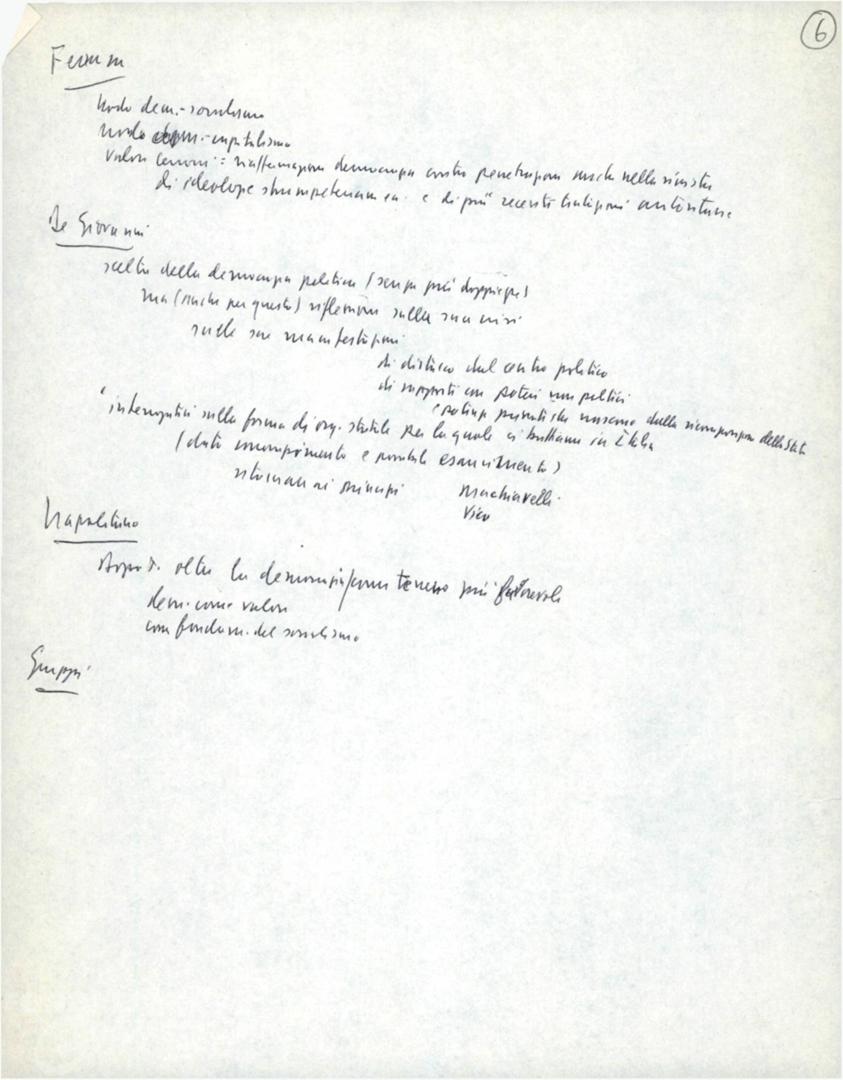 6
Ferrara
nodo dem.-socialismo
nodo dem.-capitalismo
valori comuni: riaffermazione democrazia contro penetrazione anche nella sinistra
di ideologie e di più recenti tentazioni autoritarie
De Giovanni
scelta della democrazia politica (senza più doppiezze)
ma (anche per questo) riflessione sulla sua crisi
sulle sue manifestazioni
di distacco dal centro politico
di rapporti con poteri non politici
(potenze private che nascono dalla scomposizione dello Stato
"interrogativi sulla forma di org. statale per la quale ci battiamo in Italia
(dato incompimento e possibile esaurimento)
ritornare ai principi Machiavelli
Vico
Napolitano
oltre la democrazia come terreno più favorevole
dem. come valore
come fondam. del socialismo
Gruppi